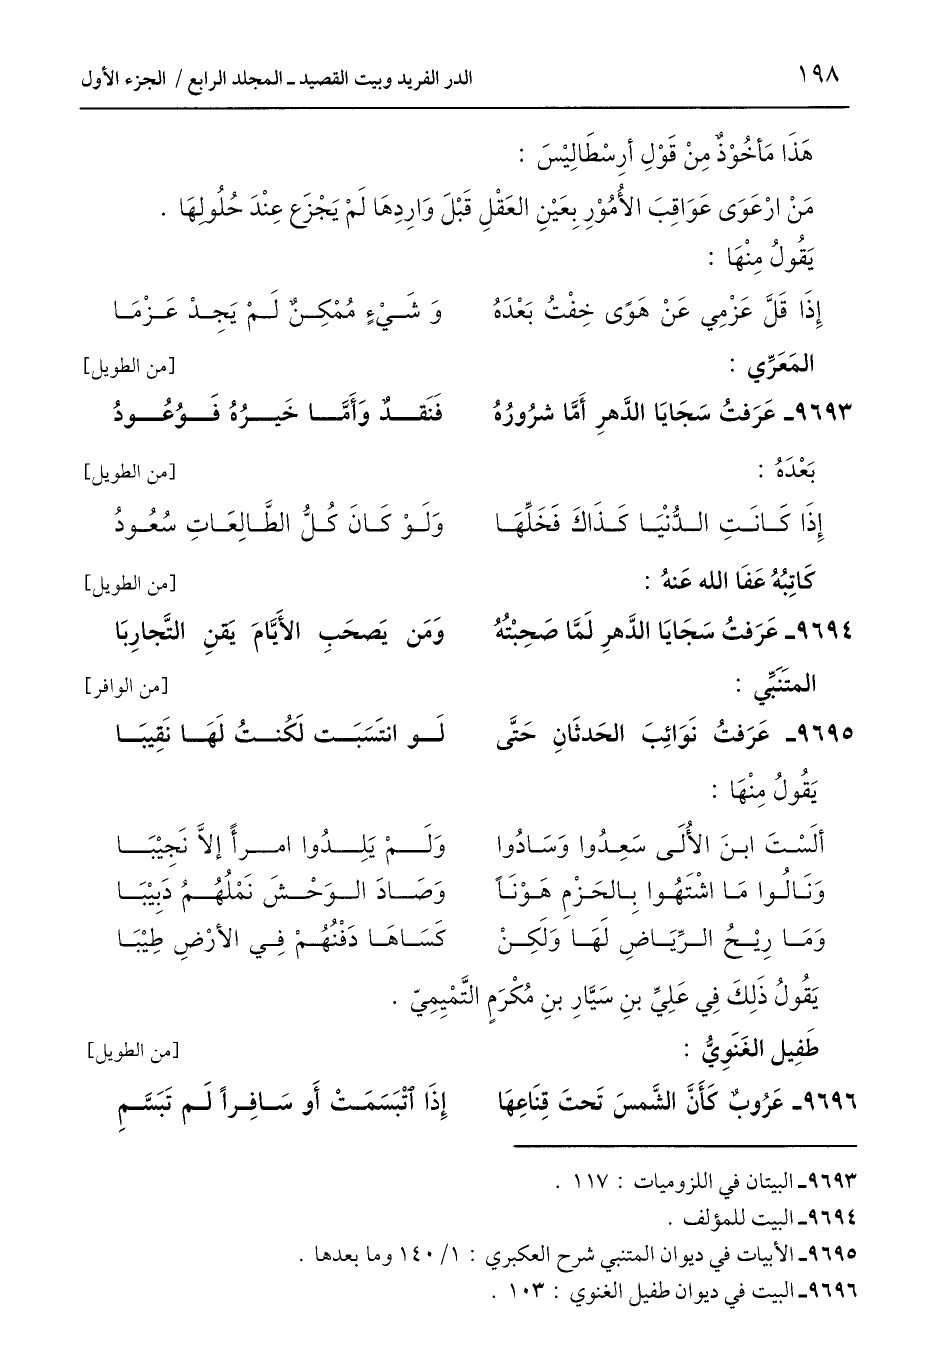 ١٩٨ الدر الفريد وبيت القصيد ـ المجلد الرابع / الجزء الأول
هَذَا مَأخُوْذٌ مِنْ قَوْلِ أرِسْطَالِيْسَ :
مَنْ ارْعَوَى عَوَاقِبَ الأُمُوْرِ بِعَيْنِ العَقْلِ قَبْلَ وَارِدِهَا لَمْ يَجْزَع عِنْدَ حُلُولِهَا .
يَقُولُ مِنْهَا :
إِذَا قَلَّ عَزْمِي عَنْ هَوًى خِفْتُ بَعْدَهُ وَ شَيْءٍ مُمْكِنٌ لَمْ يَجِدْ عَزْمَا
المَعَرِّي : [من الطويل]
٩٦٩٣ـ عَرَفتُ سَجَايَا الدَّهرِ أمَّا شرُورُهُ فَنَقدٌ وَأَمَّا خَيرُهُ فَوُعُودُ
بَعْدَهُ : [من الطويل]
إِذَا كَانَتِ الدُّنْيَا كَذَاكَ فَخَلِّهَا وَلَوْ كَانَ كُلُّ الطَّالِعَاتِ سُعُودُ
كَاتِبُهُ عَفَا الله عَنهُ : [من الطويل]
٩٦٩٤ـ عَرَفتُ سَجَايَا الدَّهرِ لَمَّا صَحِبْتُهُ وَمَن يَصحَبِ الأيَّامَ يَقنِ التَّجارِبَا
المتَنَبِّي : [من الوافر]
٩٦٩٥ـ عَرَفتُ نَوَائِبَ الحَدثَانِ حَتَّى لَو انتَسَبَت لَكُنتُ لَهَا نَقِيبَا
يَقُولُ مِنْهَا :
ألَسْتَ ابنَ الأُلَى سَعِدُوا وَسَادُوا وَلَمْ يَلِدُوا امرأً إلاَّ نَجِيْبَا
وَنَالُوا مَا اشْتَهُوا بِالحَزْمِ هَوْنَاً وَصَادَ الوَحْشَ نَمْلُهُمُ دَبِيْبَا
وَمَا رِيْحُ الرِّيَاضِ لَهَا وَلَكِنْ كَسَاهَا دَفْنُهُمْ فِي الأرْضِ طِيْبَا
يَقُولُ ذَلِكَ فِي عَلِيِّ بنِ سَيَّارِ بنِ مُكْرَمِ التَّمْيِمِيّ .
طَفِيل الغَنَوِيُّ : [من الطويل]
٩٦٩٦ـ عَرُوبٌ كَأَنَّ الشَّمسَ تَحتَ قِنَاعِهَا إِذَا ٱبْتَسَمَتْ أَو سَافِراً لَم تَبَسَّمِ
٩٦٩٣ـ البيتان في اللزوميات : ١١٧ .
٩٦٩٤ـ البيت للمؤلف .
٩٦٩٥ـ الأبيات في ديوان المتنبي شرح العكبري : ١/ ١٤٠ وما بعدها .
٩٦٩٦ـ البيت في ديوان طفيل الغنوي : ١٠٣ .